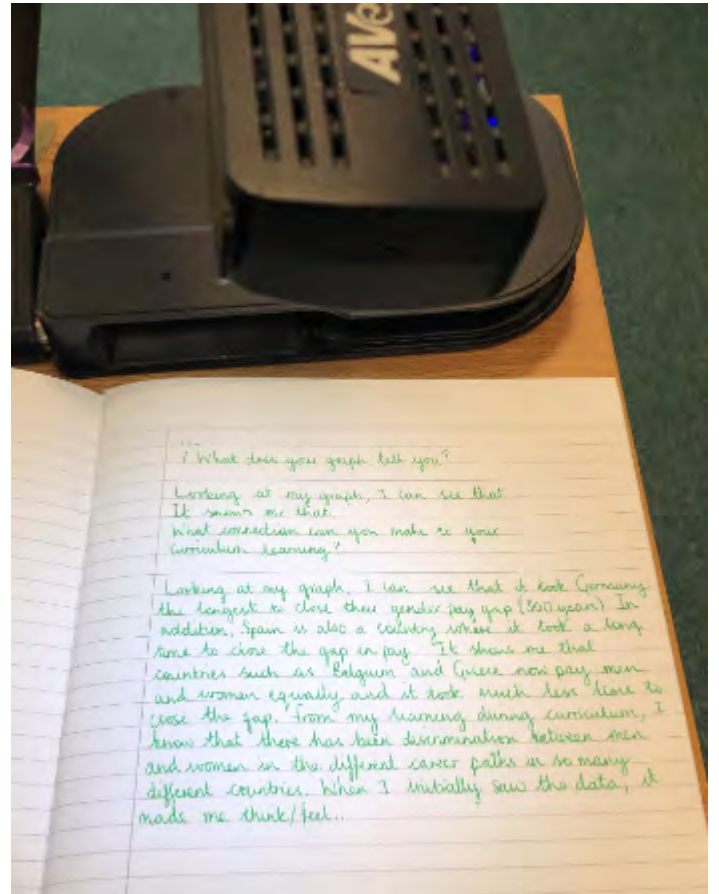 AVe
...
? What does your graph tell you?
Looking at my graph, I can see that
It shows me that
What connection can you make to your
curriculum learning?
Looking at my graph, I can see that it took Germany
the longest to close their gender pay gap (300 years) In
addition, Spain is also a country where it took a long
time to close the gap in pay. It shows me that
countries such as Belgium and Greece now pay men
and women equally and it took much less time to
close the gap. From my learning during curriculum, I
know that there has been discrimination between men
and women in the different career paths in so many
different countries. When I initially saw the data, it
made me think/feel..